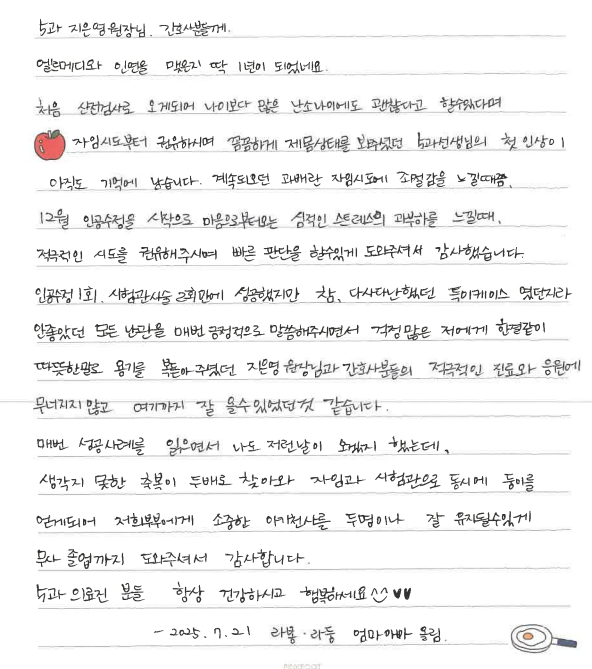 5과 지은영원장님, 간호사분들께.
엘르메디와 인연을 맺은지 딱 1년이 되었네요.
처음 산전검사로 오게되어 나이보다 많은 난소나이에도 괜찮다고 할수있다며
자임시도부터 권유하시며 꼼꼼하게 제몸상태를 보아주셨던 5과선생님의 첫 인상이
아직도 기억에 남습니다. 계속되오던 과배란 자임시도에 조멸감을 느낄때쯤,
12월 인공수정을 시작으로 마음으로부터오는 심적인 스트레스의 과부하를 느낄때,
적극적인 시도를 권유해주시며 빠른 판단을 할수있게 도와주셔서 감사했습니다.
인공수정 1회, 시험관시술 2회만에 성공했지만 참, 다사다난했던 특이케이스 였던지라
안좋았던 모든 난관을 매번 긍정적으로 말씀해주시면서 걱정많은 저에게 한결같이
따뜻한말로 용기를 북돋아주셨던 지은영 원장님과 간호사분들의 적극적인 진료와 응원에
무너지지않고 여기까지 잘 올수있었던것 같습니다.
매번 성공사례를 읽으면서 나도 저런날이 오겠지 했는데,
생각지 못한 축복이 두배로 찾아와 자임과 시험관으로 동시에 둥이를
얻게되어 저희부부에게 소중한 아기천사를 두명이나 잘 유지될수있게
무사 졸업까지 도와주셔서 감사합니다.
5과 의료진 분들 항상 건강하시고 행복하세요
- 2025. 7. 21 라봉·라둥 엄마아빠 올림.